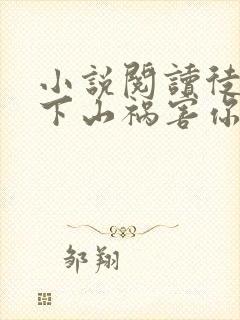 小說閱讀徒
下山禍害你
邹翔